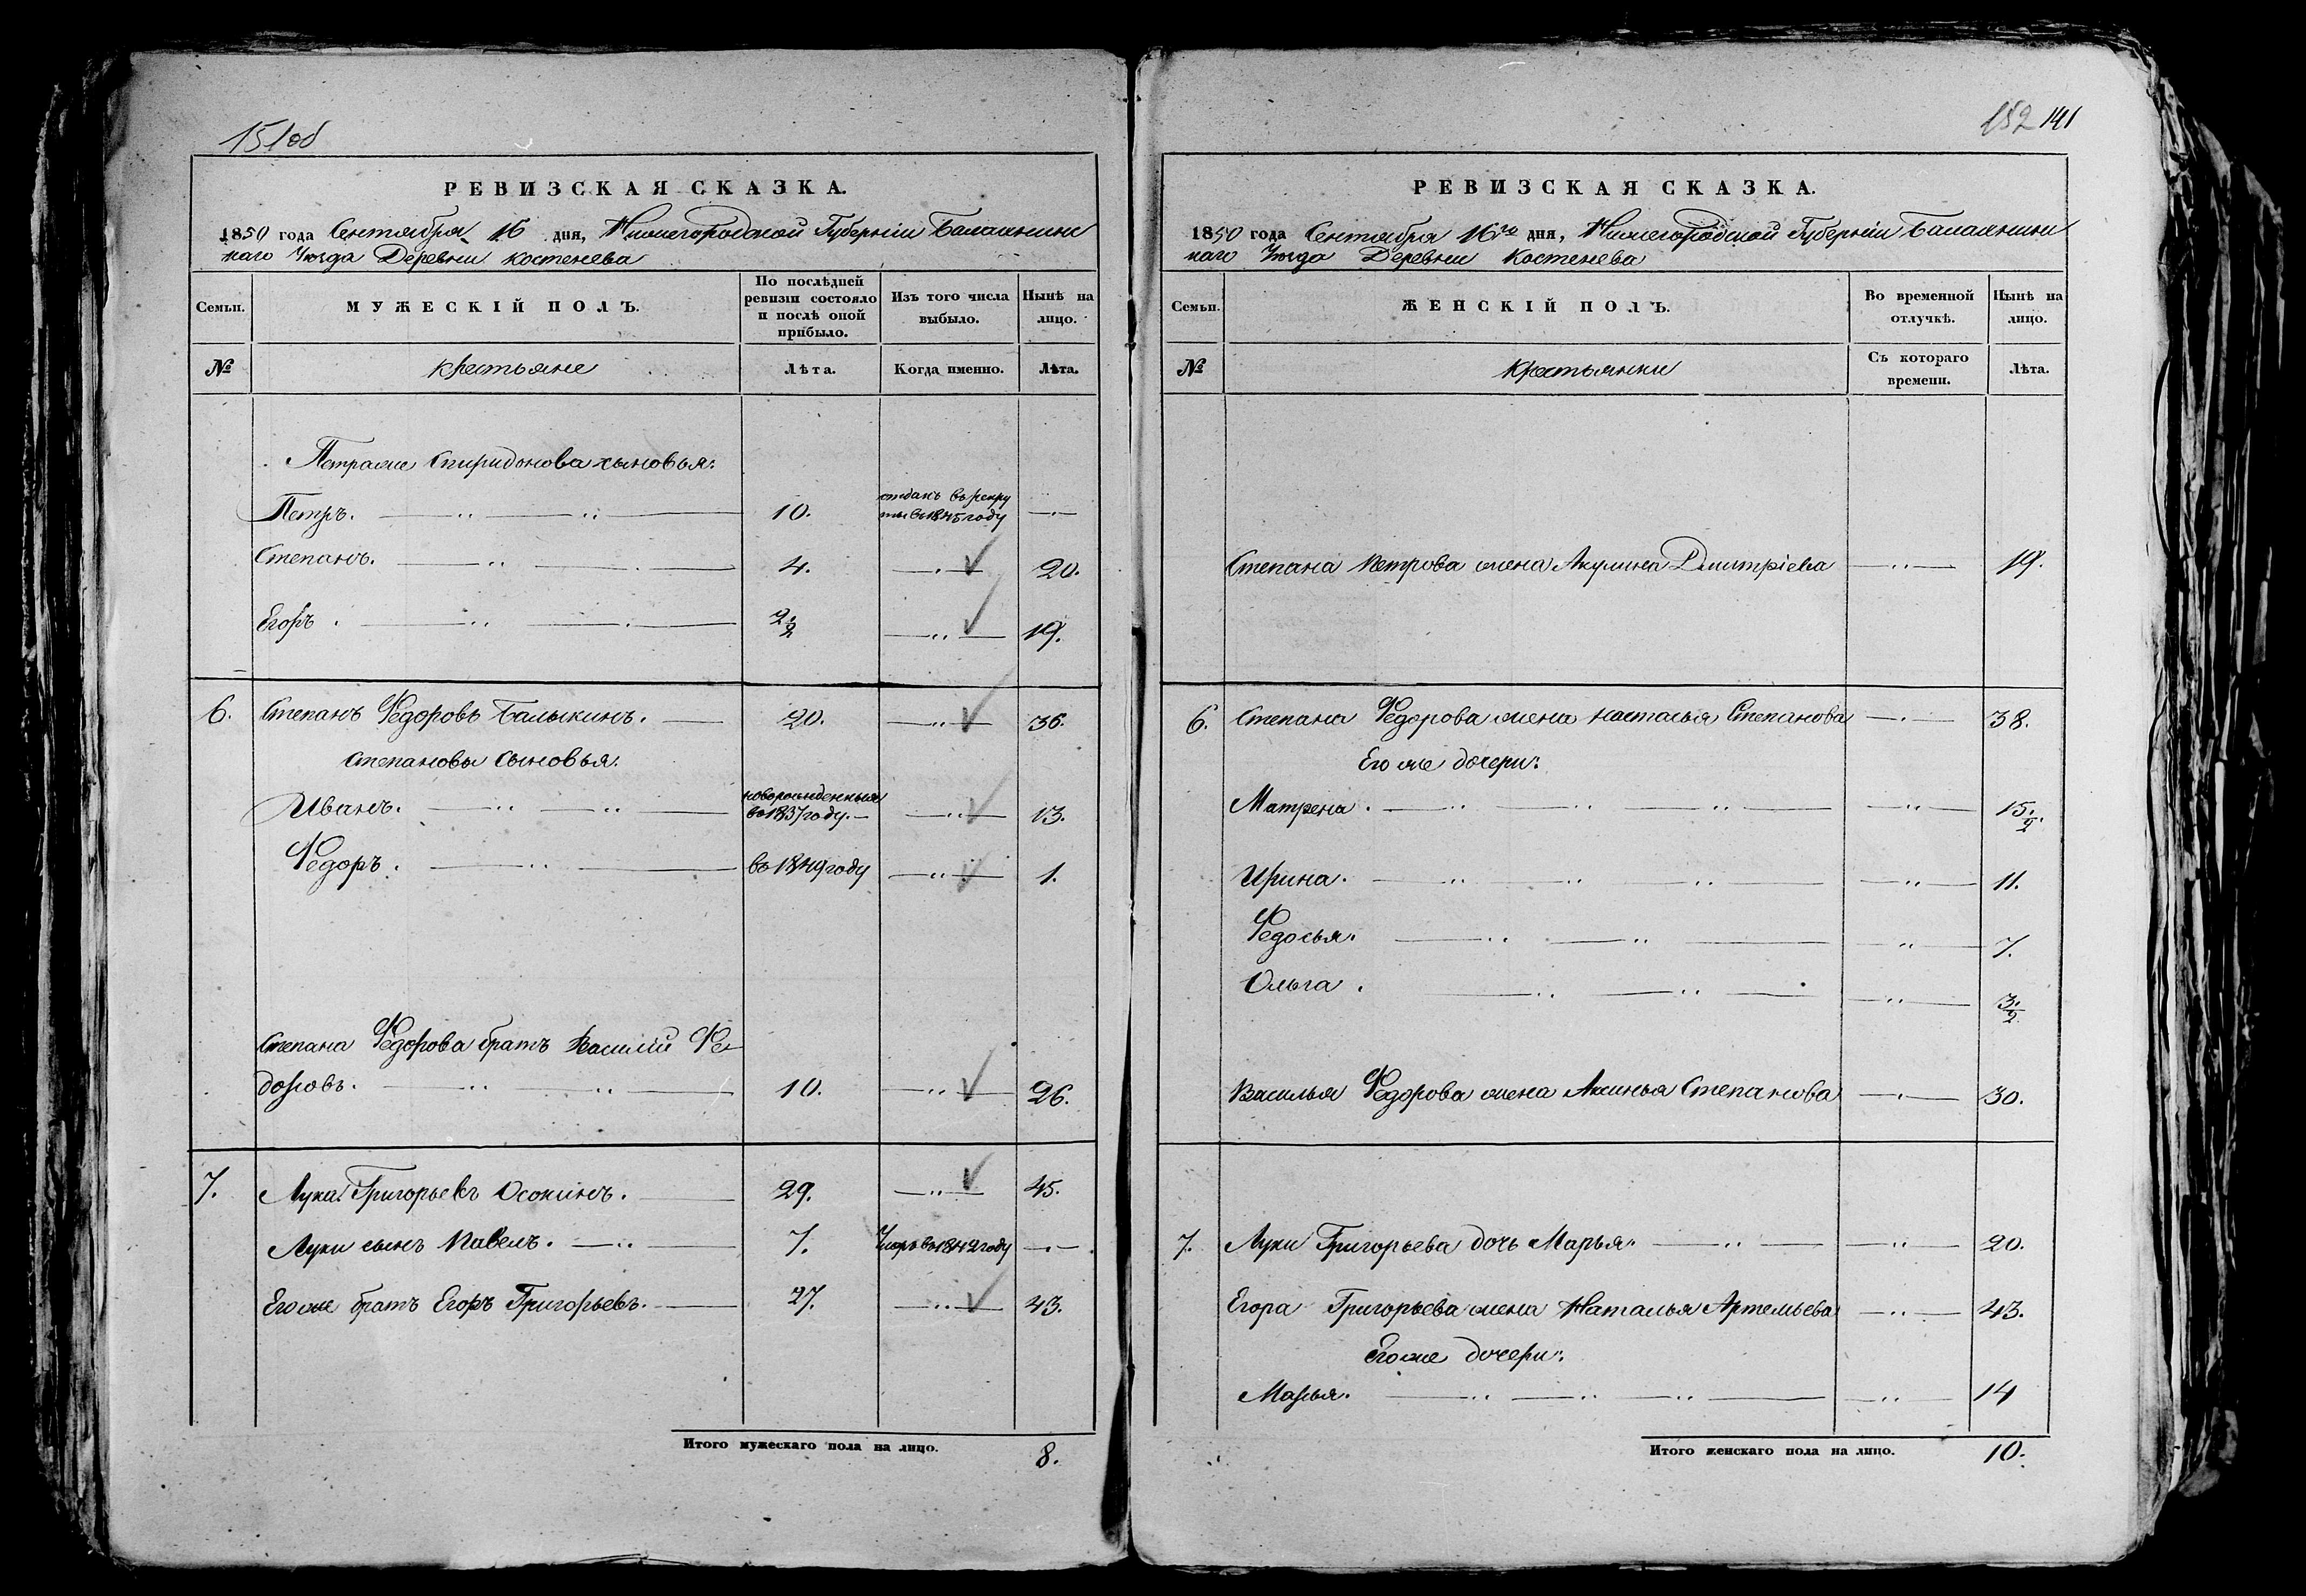 151об
РЕВИЗСКАЯ СКАЗКА.
1850 года Сентября 16 дня, Нижегородской Губерніи Балахнинс
каго Уѣзда Деревни Костенева
Семьи.
МУЖЕСКІЙ ПОЛЪ.
По послѣдней
ревизіи состояло
и послѣ оной
прибыло.
Изъ того числа
выбыло.
Нынѣ на
лицо.
№
крестьяне
Лѣта.
Когда именно.
Лѣта.
Петра же Спиридонова сыновья:
Петръ. 10. отданъ въ рекру
ты въ 1845 году
Степанъ. 4. 20.
Егоръ. 2 1/2 19.
6. Степанъ Ѳедоровъ Балыкинъ. 20. 36.
Степановы сыновья:
Иванъ. новорожденный
въ 1837 году. 13.
Ѳедоръ. въ 1849 году 1.
Степана Ѳедорова братъ Василій Ѳе
доровъ. 10. 26.
7. Лука Григорьевъ Осокинъ. 29. 45.
Луки сынъ Павелъ. 7. Умеръ въ 1842 году
Его же братъ Егоръ Григорьевъ. 27. 43.
Итого мужескаго пола на лицо. 8.
152 141
РЕВИЗСКАЯ СКАЗКА.
1850 года Сентября 16го дня, Нижегородской Губерніи Балахнин
скаго Уѣзда Деревни Костенева
Семьи.
ЖЕНСКІЙ ПОЛЪ.
Во временной
отлучкѣ.
Нынѣ на
лицо.
№
Крестьянки
Съ котораго
времени.
Лѣта.
Степана Петрова жена Акулина Дмитріева 19.
6. Степана Ѳедорова жена Настасья Степанова 38.
Его же дочери:
Матрена. 15 1/2.
Ирина. 11.
Ѳедосья. 7.
Ольга. 3 1/2
Василья Ѳедорова жена Аксинья Степанова 30.
7. Луки Григорьева дочь Марья. 20.
Егора Григорьева жена Наталья Артемьева 43.
Его же дочери:
Марья. 14
Итого женскаго пола на лицо. 10.